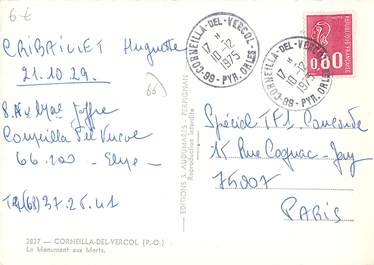 6 €
CRIBAILLET Huguette
21.10.29.
66
8. Av. Mal Joffre
Corneilla del Vercol
66.200 - Elne
Tel (68) 37.26.41
2837 — CORNEILLA-DEL-VERCOL (P.-O.)
Le Monument aux Morts.
EDITIONS S. AUDOUARES - PERPIGNAN
Reproduction interdite.
CORNEILLA-DEL-VERCOL
17 H
10-12
1975
66-PYR. ORLES
CORNEILLA-DEL-VERCOL
10-12
1975
66-PYR. ORLES
REPUBLIQUE FRANÇAISE
0,80
Spécial TF1. Concorde
15 Rue Cognac-Jay
75007
PARIS